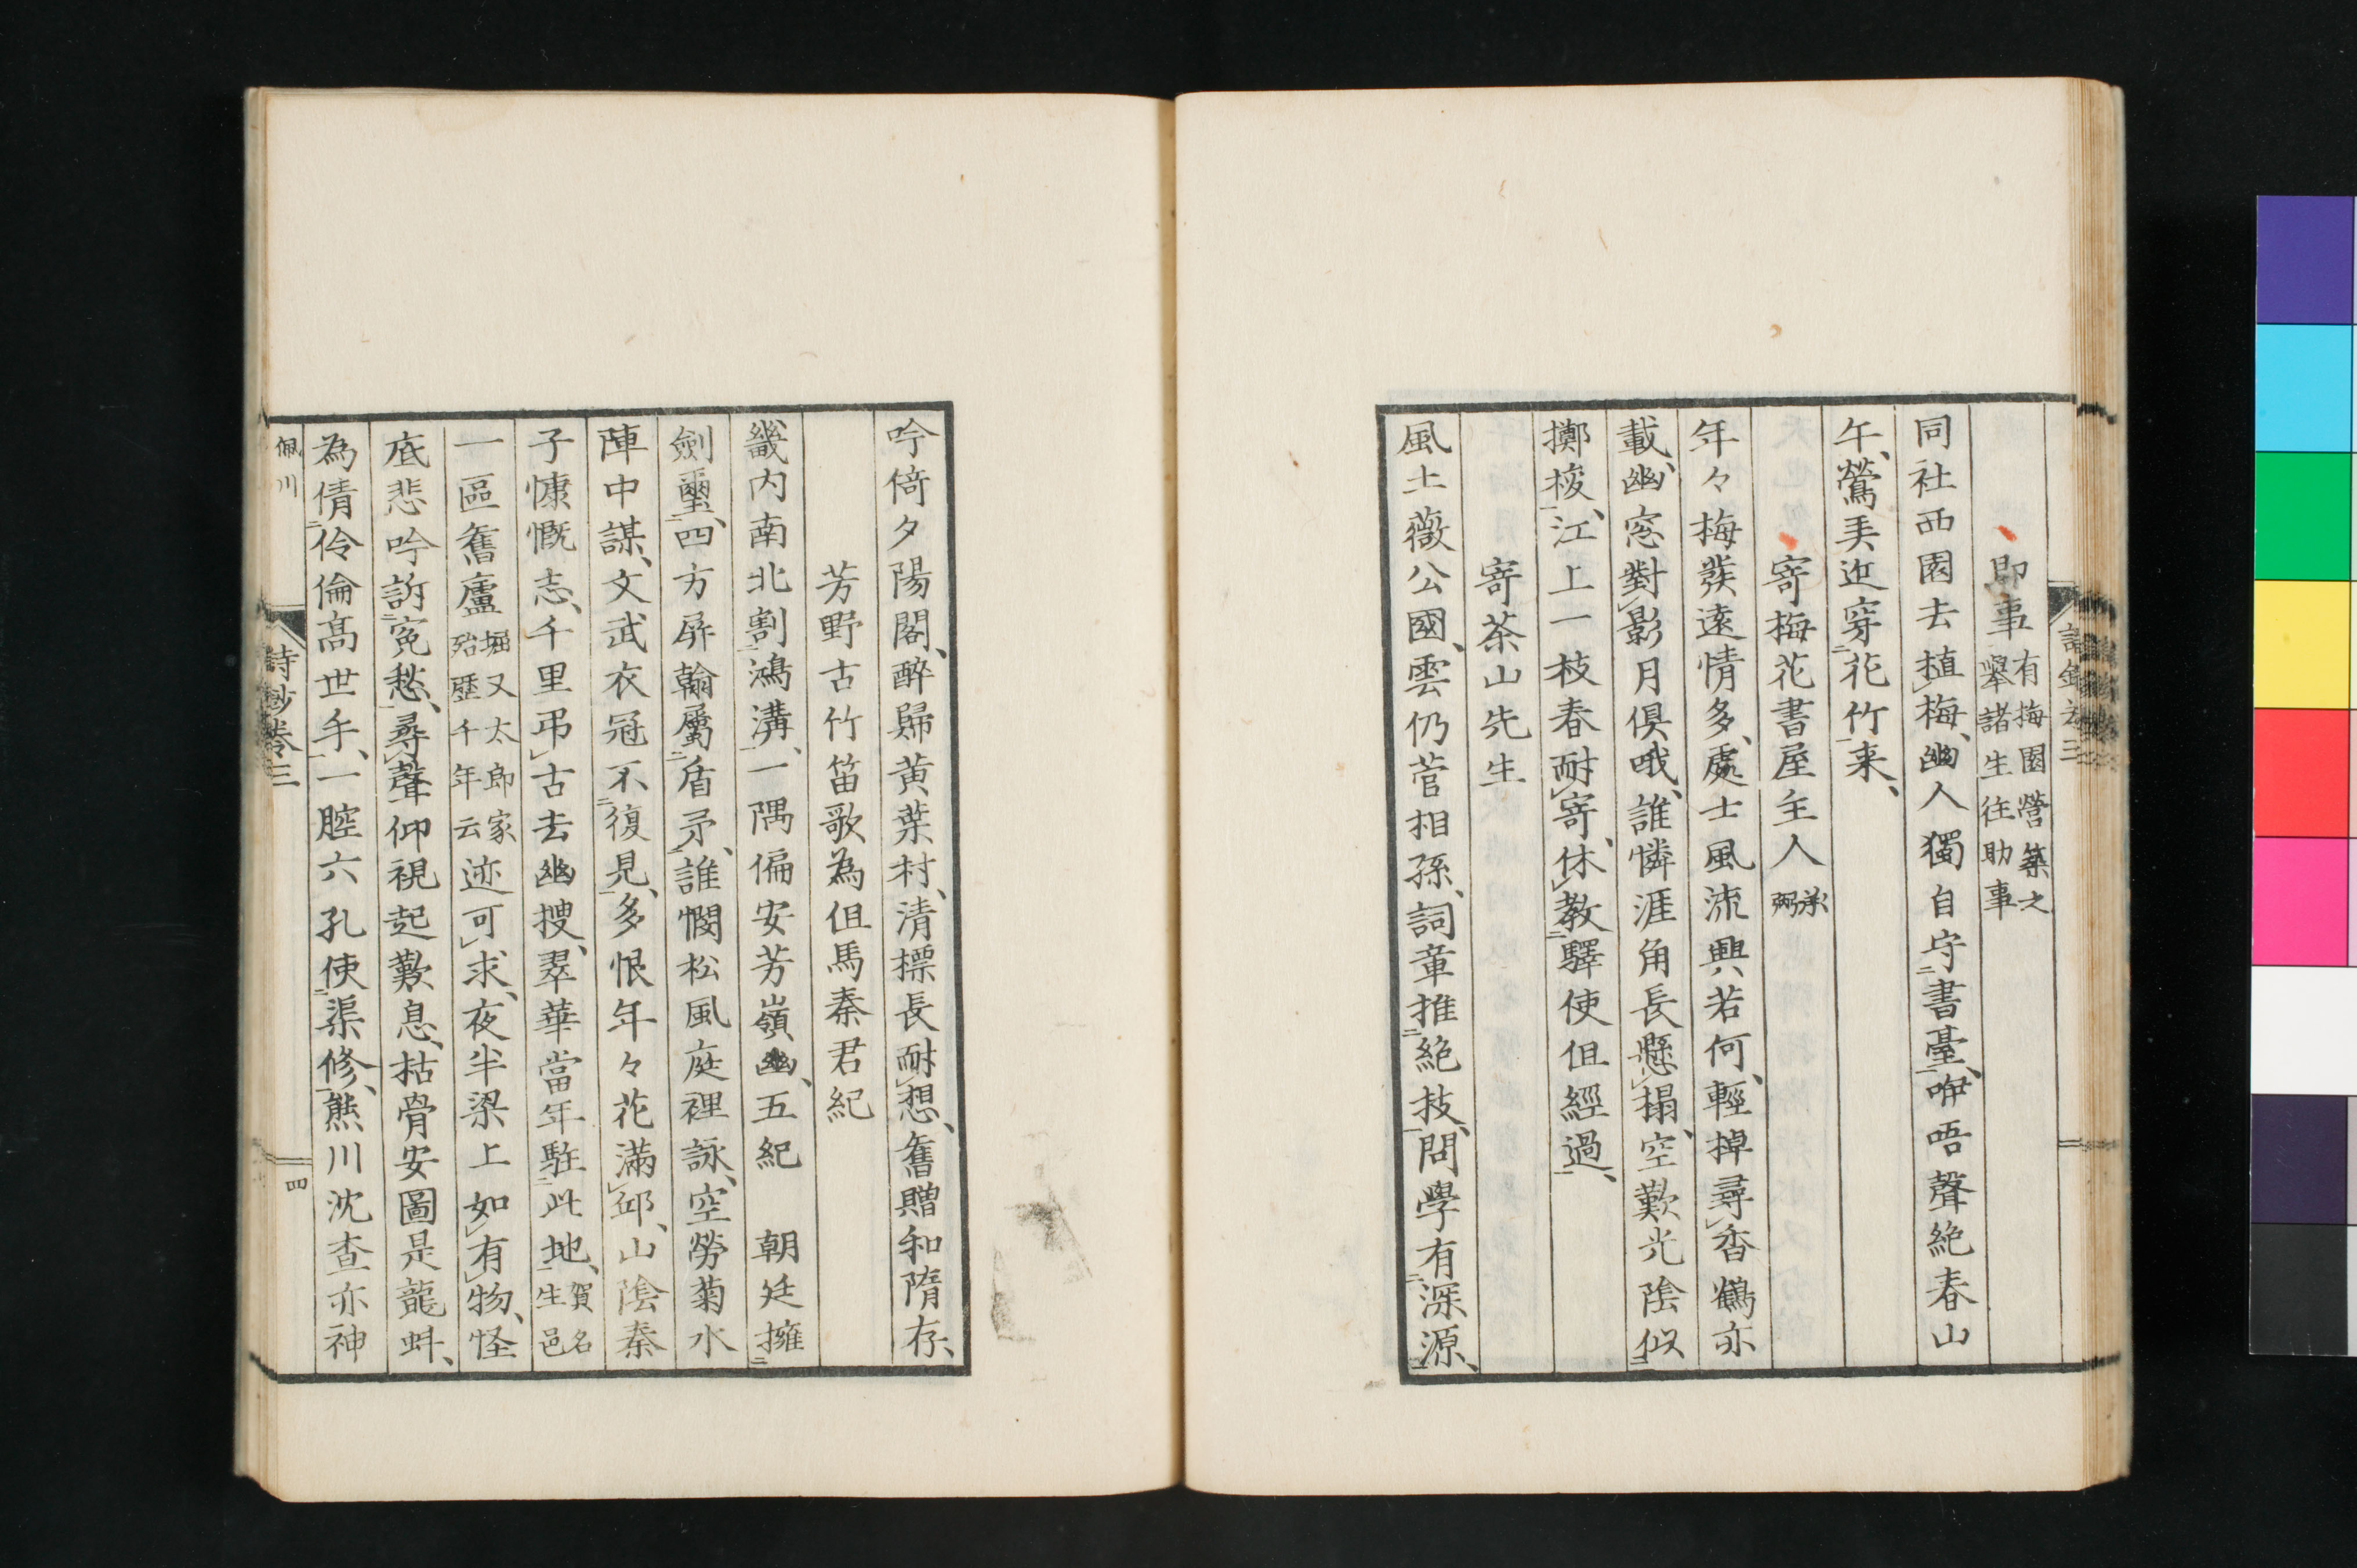 即事 有梅園營築之
擧諸生往助事
同社西園去植梅、幽人獨自守書臺、咿唔聲絶春山
午、鶯美近穿花竹来、
寄梅花書屋主人
年々梅發遠情多、處士風流興若何、輕掉尋香鶴亦
載、幽窓對影月倶哦、誰憐涯角長懸榻、空歎光陰似
擲梭、江上一枝春耐寄、休教驛使但經過、
寄茶山先生
風土薇公國、雲仍菅相孫、詞章推絶技、問學有深源、
吟倚夕陽閣、醉歸黄葉村、清標長耐想、舊贈和隋存、
芳野古竹笛歌為但馬秦君紀
畿内南北割鴻溝、一隅偏安芳嶺幽、五紀 朝廷擁
劍璽、四方屏翰屬盾矛、誰憫松風庭裡詠、空勞菊水
陣中謀、文武衣冠不復見、多恨年々花滿邱、山陰秦
子慷慨志、千里弔古去幽搜、翠華當年駐此地、賀名
生邑
一區舊廬 堀又太郎家
殆歷千年云 迹可求、夜半梁上如有物、怪
底悲吟訴寃愁、尋聲仰視起歎息、枯骨安圖是龍蚪、
為倩伶倫高世手、一腔六孔使渠修、熊川沈査亦神
佩川
詩鈔卷三
四